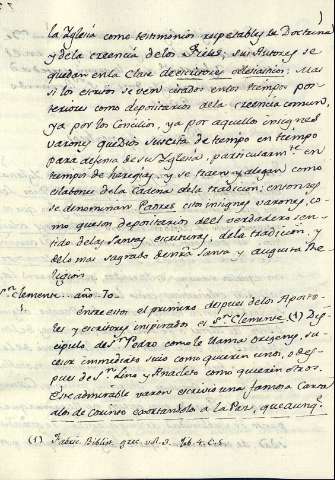 la Yglesia como testimonios respetables de Doctrina
y de la creencia de los Fieles; sus Autores se
quedan en la clase de escritores eclesiasticos; Mas
si los escritos se ven citados en los tiempos pos-
teriores como depositarios de la creencia comun,
ya por los Concilios, ya por aquellos insignes
varones que Dios suscita de tiempo en tiempo
para defensa de su Yglesia, particularm.te en
tiempos de heregias, y se traen y alegan como
eslabones de la Cadena de la tradicion; entonces
se denominan Padres estos insignes varones, co-
mo que son depositarios del verdadero sen-
tido de las Santas escrituras, de la tradicion, y
de lo mas sagrado de nra Santa y augusta Re-
ligion.
S.n Clemente... año 70
Entre estos el primero despues de los Aposto-
les y escritores inspirados es S.n Clemente (1) Dis-
cipulo de S.n Pedro como le llama Origenes, su-
cesor immediato suyo como quieren unos, o des-
pues de S.n Lino y Anacleto como quieren otros.
Este admirable varon escrivio una famosa Carta
a los de Corinto exortandolos a la Paz, que aunq.e
(1) Fabric Bibliot. grec. vol. 3. lib. 4. C. 5.